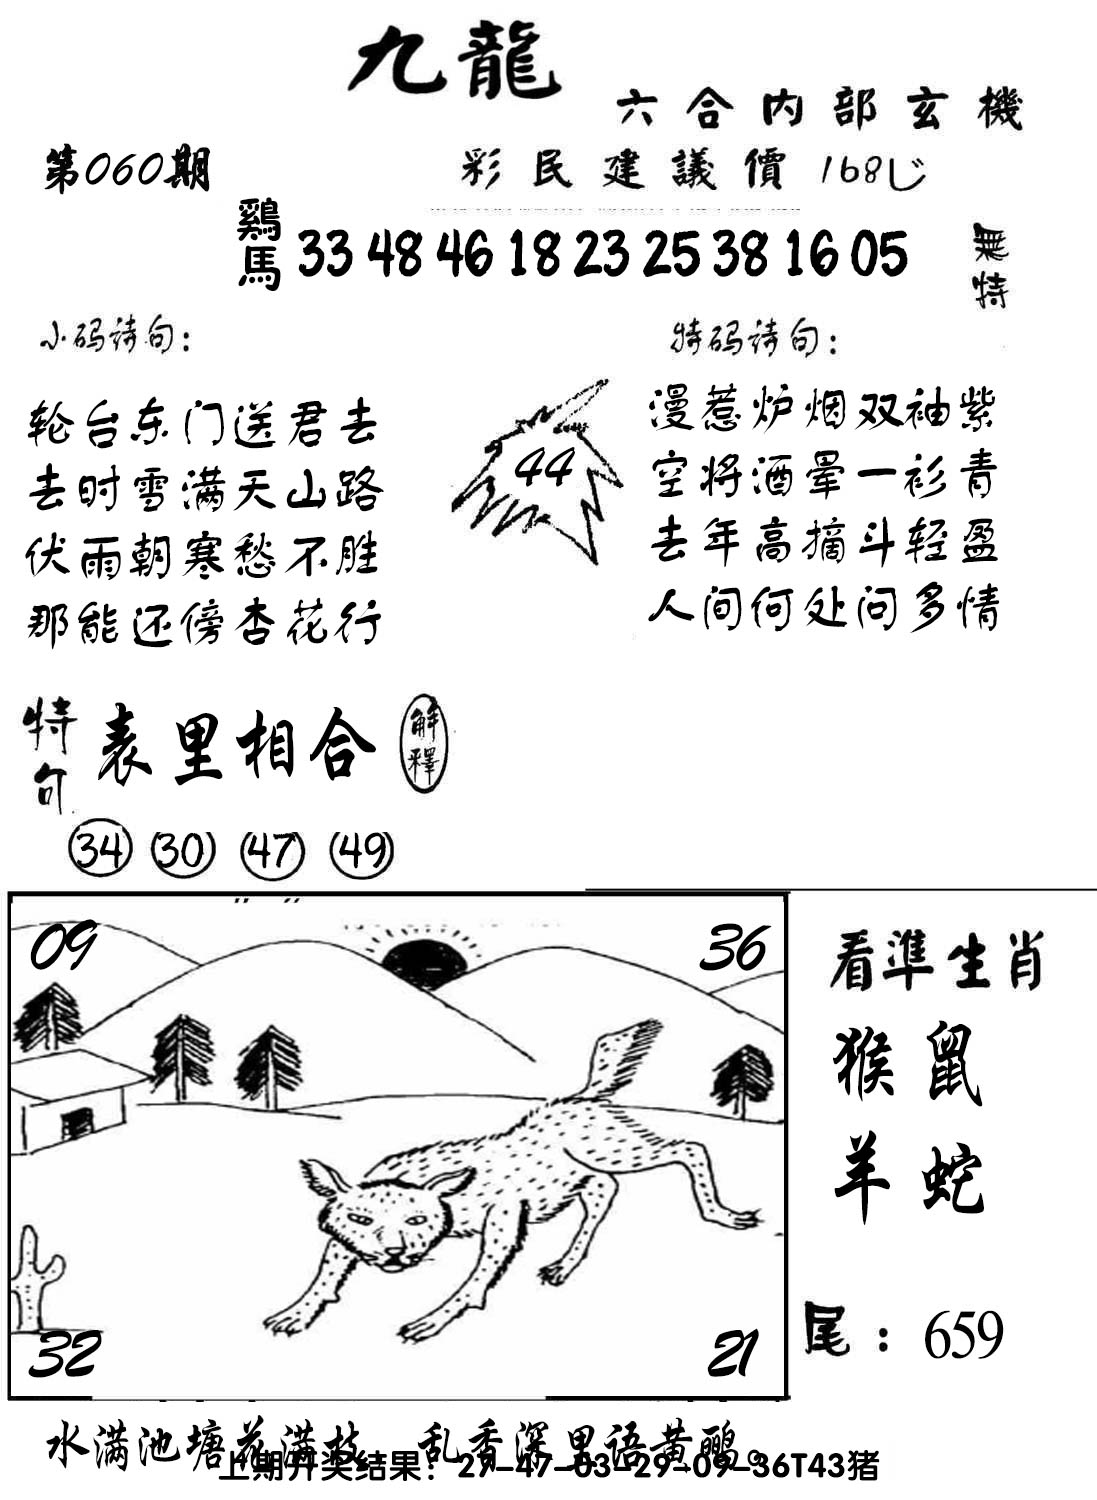 九龍
六合内部玄機
第060期
彩民建議價168
鷄馬 33 48 46 18 23 25 38 16 05
無特
小码诗句：
特码诗句：
轮台东门送君去
去时雪满天山路
伏雨朝寒愁不胜
那能还傍杏花行
44
漫惹炉烟双袖紫
空将酒晕一衫青
去年高摘斗轻盈
人间何处问多情
特句 表里相合 解釋
34 30 47 49
09
36
32
21
看準生肖
猴鼠
羊蛇
尾：659
水满池塘花满枝 乱香深里语黄鹂。
上期开奖结果：27-47-03-29-09-36T43猪